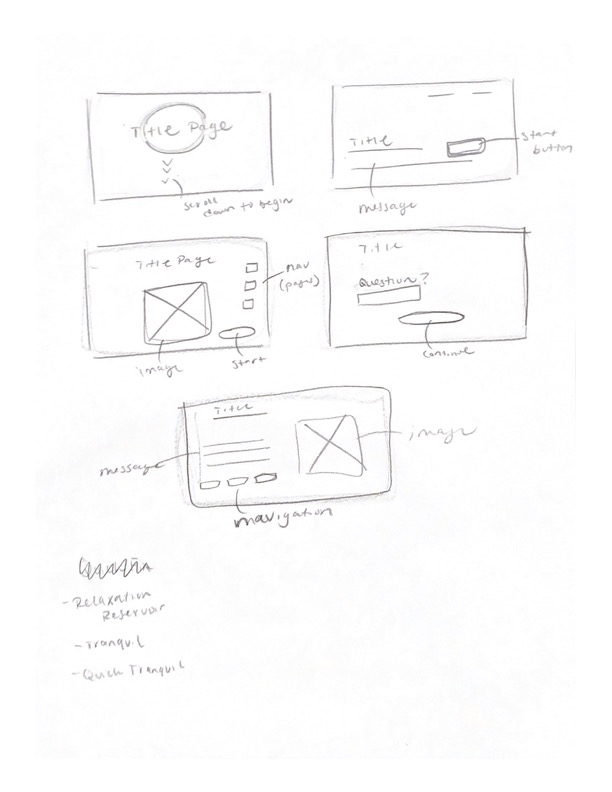 Title Page
scroll
down to begin
Title
start
button
message
Title Page
nav
(pages)
image
start
Title
Question?
continue
Title
message
image
navigation
- Relaxation
Reservoir
- Tranquil
- Quick Tranquil